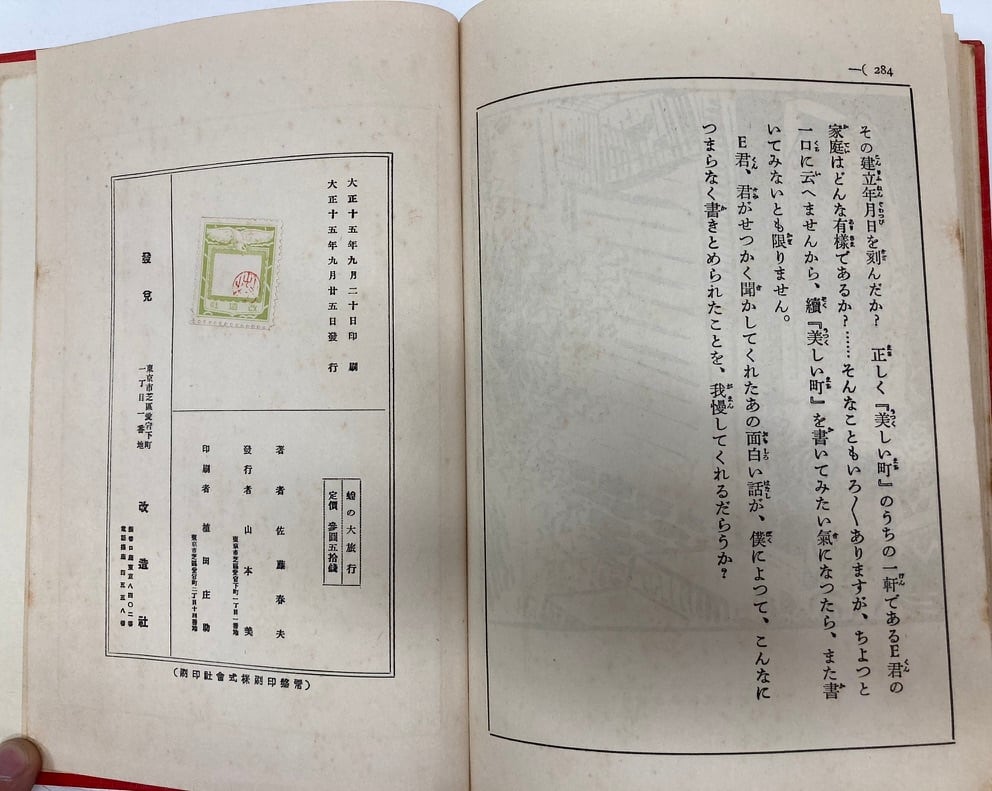 284
その建立年月日を刻んだか？　正しく『美しい町』のうちの一軒であるE君の
家庭はどんな有樣であるか？……そんなこともいろ〱ありますが、ちよつと
一口に云へませんから、續『美しい町』を書いてみたい氣になつたら、また書
いてみないとも限りません。
E君、君がせつかく聞かしてくれたあの面白い話が、僕によつて、こんなに
つまらなく書きとめられたことを、我慢してくれるだらうか？
大正十五年九月二十日印刷
大正十五年九月廿五日發行
改造社
蝗の大旅行
定價 參圓五拾錢
著者 佐藤春夫
發行者 山本美
東京市芝區愛宕下町一丁目一番地
印刷者 植田庄助
發兌
東京市芝區愛宕下町
一丁目一番地
改造社
(常磐印刷株式會社印刷)